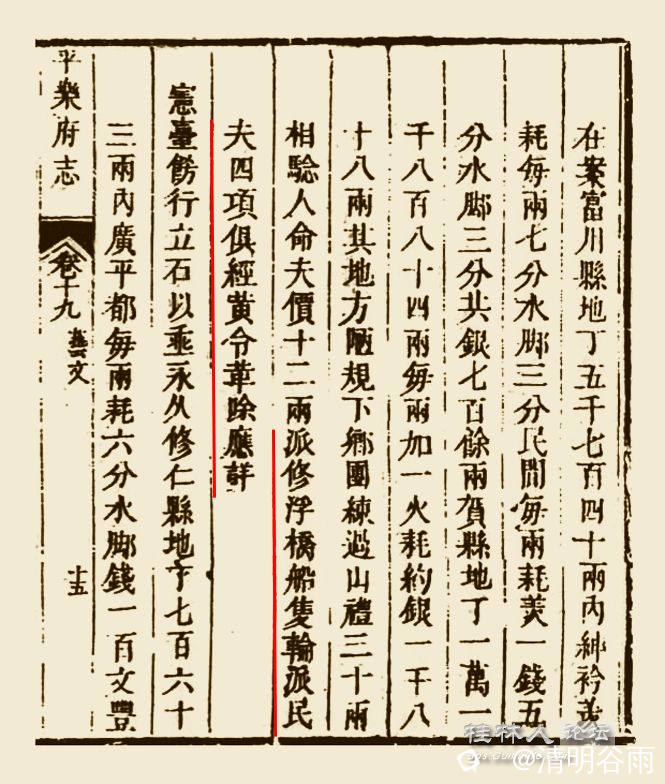 在案富川縣地丁五千七百四十兩內紳衿羨
耗每兩七分水脚三分民間每兩耗羨一錢五
分水脚三分共銀七百餘兩賀縣地丁一萬一
千八百八十四兩每兩加一火耗約銀一千八
十八兩其地方陋規下鄉團練過山禮三十兩
相騐人命夫價十二兩派修浮橋船隻輪派民
夫四項俱經黄令革除應詳
憲臺飭行立石以垂永久修仁縣地丁七百六十
三兩內廣平都每兩耗六分水脚錢一百文豐
平樂府志
卷十九
藝文
十五
桂林人论坛
@清明谷雨